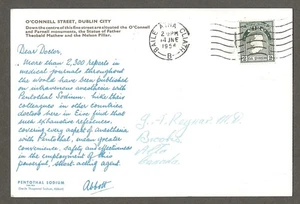 O'CONNELL STREET, DUBLIN CITY
Down the centre of this fine street are situated the O'Connell
and Parnell monuments, the Statue of Father
Theobald Mathew and the Nelson Pillar.
Dear Doctor,
More than 2,300 reports in
medical journals throughout
the world have been published
on intravenous anaesthesia with
Pentothal Sodium. Like their
colleagues in other countries
doctors here in Eire find that
such exhaustive references,
covering every aspect of anaesthesia
with Pentothal, mean greater
convenience, safety and effectiveness
in the employment of this
powerful, short-acting agent.
Abbott
PENTOTHAL SODIUM
BAILE
2 30PM
14 JNE
B
M.D.